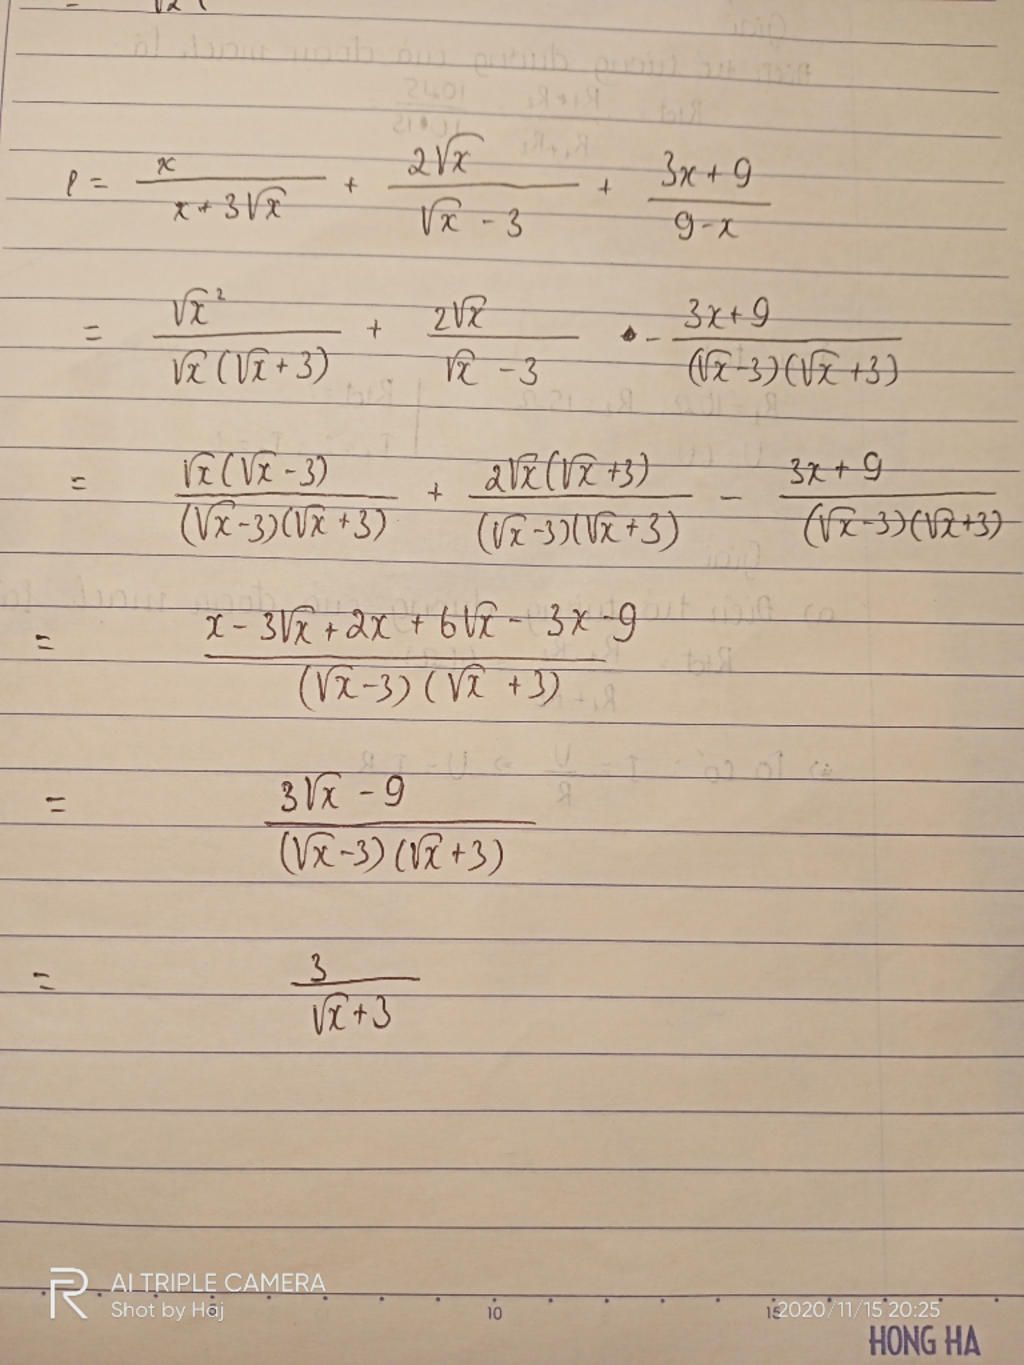 P = x / (x + 3√x) + 2√x / (√x - 3) + (3x + 9) / (9 - x)
= √x² / (√x (√x + 3)) + 2√x / (√x - 3) - (3x + 9) / ((√x - 3)(√x + 3))
= √x (√x - 3) / ((√x - 3)(√x + 3)) + 2√x (√x + 3) / ((√x - 3)(√x + 3)) - (3x + 9) / ((√x - 3)(√x + 3))
= (x - 3√x + 2x + 6√x - 3x - 9) / ((√x - 3)(√x + 3))
= (3√x - 9) / ((√x - 3)(√x + 3))
= 3 / (√x + 3)
AI TRIPLE CAMERA
Shot by Hej
10
15
2020/11/15 20:25
HONG HA